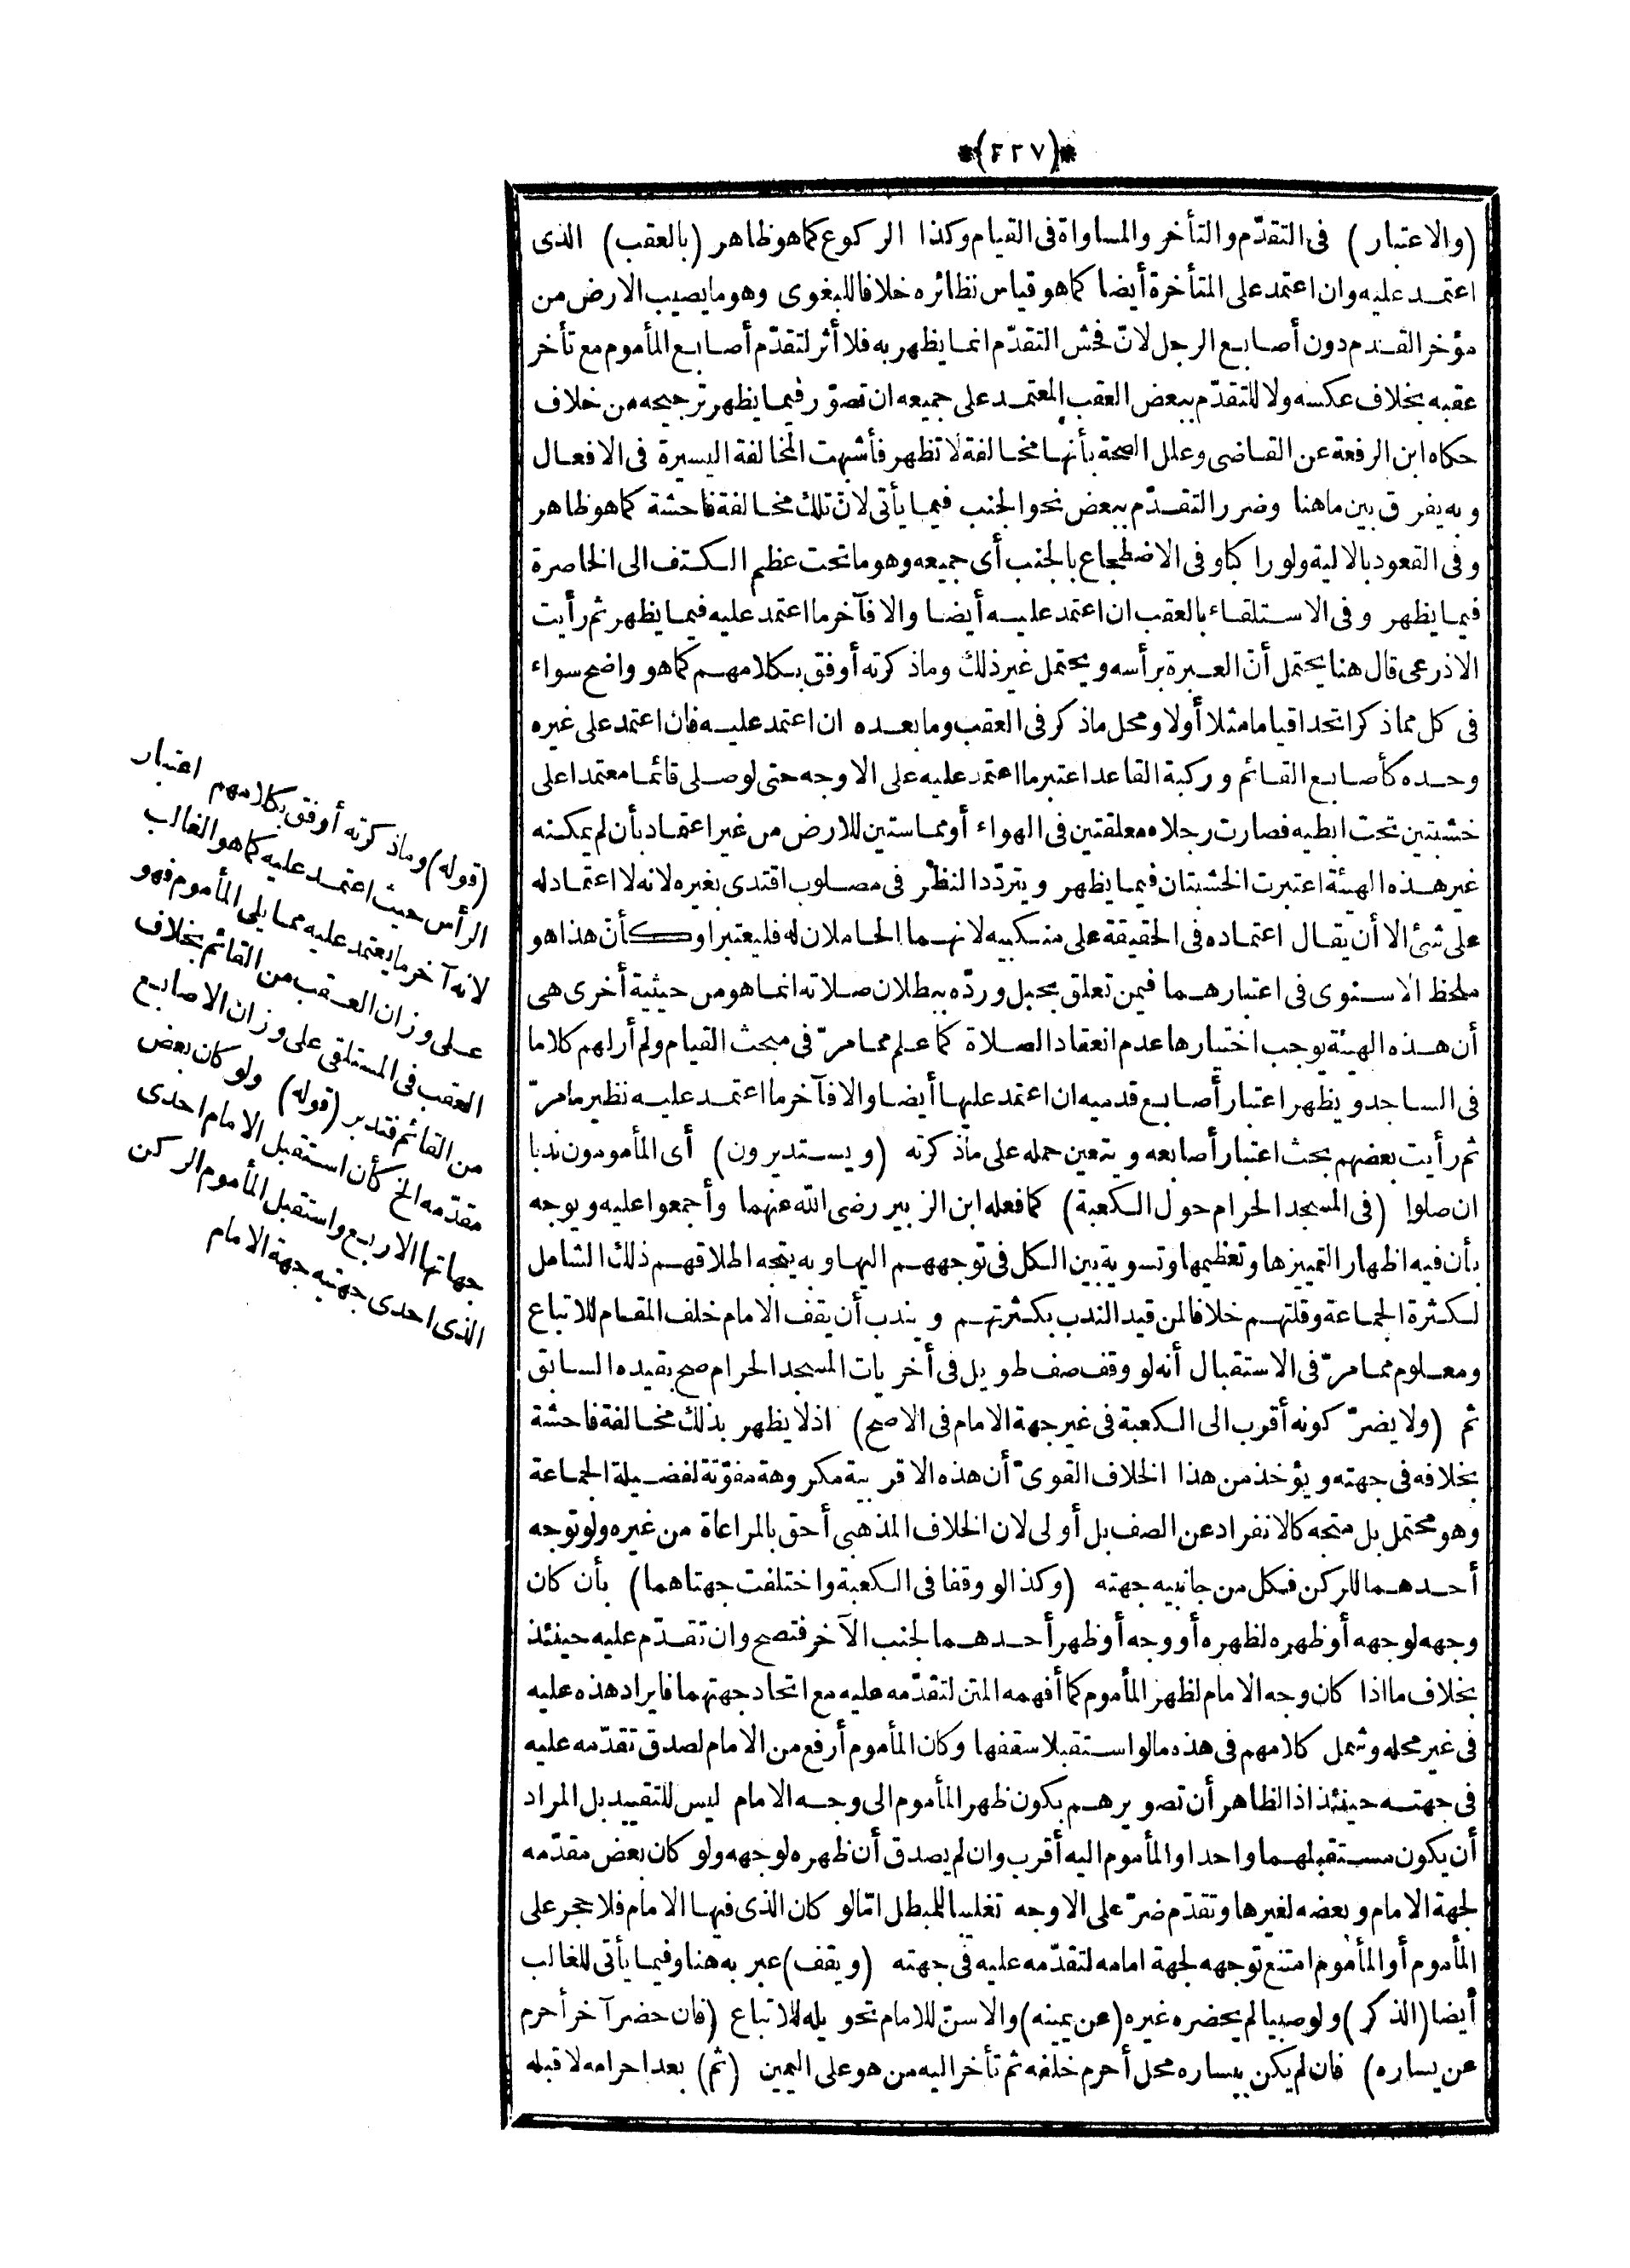 *(٢٢٧)*
(والاعتبار) فى التقدّم والتأخر والمساواة فى القيام وكذا الركوع كما هو ظاهر (بالعقب) الذى
اعتمد عليه وان اعتمد على المتأخرة أيضا كما هو قياس نظائره خلافا للبغوى وهو ما يصيب الارض من
مؤخر القدم دون أصابع الرجل لانّ فحش التقدّم انما يظهر به فلا أثر لتقدّم أصابع المأموم مع تأخر
عقبه بخلاف عكسه ولا للتقدّم ببعض العقب المعتمد على جميعه ان تصوّر فيما يظهر ترجيحه من خلاف
حكاه ابن الرفعة عن القاضى وعلل الصحة بأنها مخالفة لا تظهر فأشبهت المخالفة اليسيرة فى الافعال
وبه يفرق بين ما هنا وضرر التقدّم ببعض نحو الجنب فيما يأتى لانّ تلك مخالفة فاحشة كما هو ظاهر
وفى القعود بالالية ولو راكبا وفى الاضطجاع بالجنب أى جميعه وهو ما تحت عظم الكتف الى الخاصرة
فيما يظهر وفى الاستلقاء بالعقب ان اعتمد عليه أيضا والا فآخر ما اعتمد عليه فيما يظهر ثم رأيت
الاذرعى قال هنا يحتمل أنّ العبرة برأسه ويحتمل غير ذلك وما ذكرته أوفق بكلامهم كما هو واضح سواء
فى كل مما ذكر اتحدا قياما مثلا أولا ومحل ما ذكر فى العقب وما بعده ان اعتمد عليه فان اعتمد على غيره
وحده كأصابع القائم وركبة القاعد اعتبر ما اعتمد عليه على الاوجه حتى لو صلى قائما معتمدا على
خشبتين تحت ابطيه فصارت رجلاه معلقتين فى الهواء أو مماستين للارض من غير اعتماد بأن لم يمكنه
غير هذه الهيئة اعتبرت الخشبتان فيما يظهر ويتردّد النظر فى مصلوب اقتدى بغيره لانه لا اعتماد له
على شئ الا أن يقال اعتماده فى الحقيقة على منكبيه لانهما الحاملان له فليعتبرا وكأن هذا هو
ملحظ الاسنوى فى اعتبارهما فيمن تعلق بحبل وردّه ببطلان صلاته انما هو من حيثية أخرى هى
أن هذه الهيئة يوجب اختيارها عدم انعقاد الصلاة كما علم مما مرّ فى مبحث القيام ولم أر لهم كلاما
فى الساجد ويظهر اعتبار أصابع قدميه ان اعتمد عليها أيضا والا فآخر ما اعتمد عليه نظير ما مرّ
ثم رأيت بعضهم بحث اعتبار أصابعه ويتعين حمله على ما ذكرته (ويستديرون) أى المأمومون ندبا
ان صلوا (فى المسجد الحرام حول الكعبة) كما فعله ابن الزبير رضى الله عنهما وأجمعوا عليه ويوجه
بأن فيه اظهار التمييزها وتعظيمها وتسوية بين الكل فى توجههم اليها وبه يتجه اطلاقهم ذلك الشامل
لكثرة الجماعة وقلتهم خلافا لمن قيد الندب بكثرتهم ويندب أن يقف الامام خلف المقام للاتباع
ومعلوم مما مرّ فى الاستقبال أنه لو وقف صف طويل فى أخريات المسجد الحرام صح بقيده السابق
ثم (ولا يضرّ كونه أقرب الى الكعبة فى غير جهة الامام فى الاصح) اذ لا يظهر بذلك مخالفة فاحشة
بخلافه فى جهته ويؤخذ من هذا الخلاف القوىّ أن هذه الاقربية مكروهة مفوّتة لفضيلة الجماعة
وهو محتمل بل متجه كالانفراد عن الصف بل أولى لان الخلاف المذهبى أحق بالمراعاة من غيره ولو توجه
أحدهما للركن فكل من جانبيه جهته (وكذا لو وقفا فى الكعبة واختلفت جهتاهما) بأن كان
وجهه لوجهه أو ظهره لظهره أو وجه أو ظهر أحدهما لجنب الآخر فتصح وان تقدّم عليه حينئذ
بخلاف ما اذا كان وجه الامام لظهر المأموم كما أفهمه المتن لتقدّمه عليه مع اتحاد جهتهما فايراد هذه عليه
فى غير محله وشمل كلامهم فى هذه ما لو استقبلا سقفها وكان المأموم أرفع من الامام لصدق تقدّمه عليه
فى جهته حينئذ اذ الظاهر أن تصويرهم بكون ظهر المأموم الى وجه الامام ليس للتقييد بل المراد
أن يكون مستقبلهما واحدا والمأموم اليه أقرب وان لم يصدق أن ظهره لوجهه ولو كان بعض مقدّمه
لجهة الامام وبعضه لغيرها وتقدّم ضرّ على الاوجه تغليبا للمبطل امّا لو كان الذى فيها الامام فلا حجر على
المأموم أو المأموم امتنع توجهه لجهة امامه لتقدّمه عليه فى جهته (ويقف) عبر به هنا وفيما يأتى للغالب
أيضا (الذكر) ولو صبيا لم يحضره غيره (عن يمينه) والاسنّ للامام تحويله للاتباع (فان حضر آخر أحرم
عن يساره) فان لم يكن بيساره محل أحرم خلفه ثم تأخر اليه من هو على اليمين (ثم) بعد احرامه لا قبله
(قوله) وما ذكرته أوفق بكلامهم اعتبار
الرأس حيث اعتمد عليه كما هو الغالب
لانه آخر ما يعتمد عليه مما يلى المأموم فهو
على وزان العقب من القائم بخلاف
العقب فى المستلقى على وزان الاصابع
من القائم فتدبر (قوله) ولو كان بعض
مقدّمه الخ كأن استقبل الامام احدى
جهاتها الاربع واستقبل المأموم الركن
الذى احدى جهتيه جهة الامام